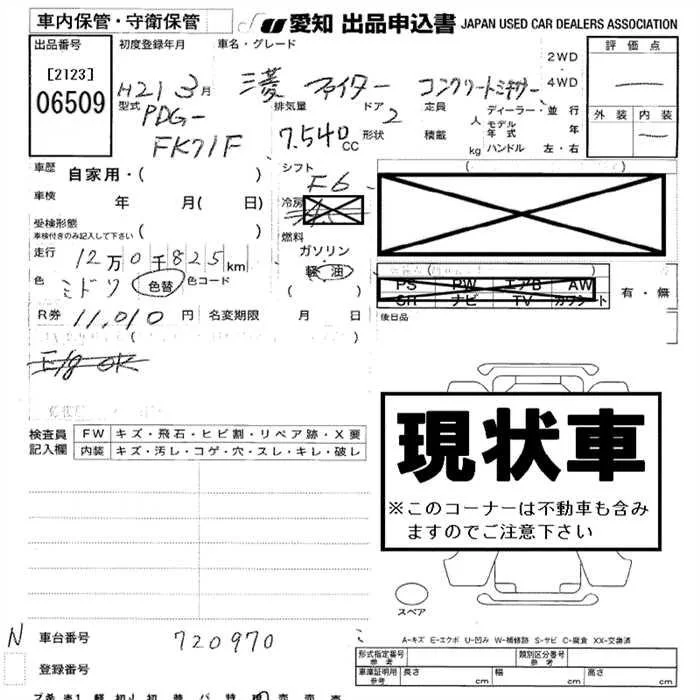 車内保管・守衛保管 JU愛知 出品申込書 JAPAN USED CAR DEALERS ASSOCIATION
出品番号 初度登録年月 車名・グレード 2WD 評価点
[2123] H21 3月 三菱 ファイター コンクリートミキサー 4WD
06509 型式 排気量 ドア 定員 ディーラー・並行 外装 内装
PDG- 2 人 モデル年式 年
FK71F 7.540cc 形状 積載 kg ハンドル 左・右
車歴 自家用・( ) シフト F6
車検 年 月( 日) 冷房
受検形態
車検付きのみ記入して下さい ( ) 燃料
走行 12万0千825km ガソリン
色 ミドリ 色替 色コード 軽油 ( )
PS PW エアB AW 有・無
SR ナビ TV カワシート
R券 11,010円 名変期限 月 日 後日品
E/g OK
検査員記入欄 FW キズ・飛石・ヒビ割・リペア跡・X要
内装 キズ・汚レ・コゲ・穴・スレ・キレ・破レ
現状車
※このコーナーは不動車も含み
ますのでご注意下さい
スペア
N 車台番号 720970
A-キズ E-エクボ U-凹み W-補修跡 S-サビ C-腐食 XX-交換済
登録番号
形式指定番号 参考 類別区分番号 参考
車庫証明用 参考 長さ cm 幅 cm 高さ cm